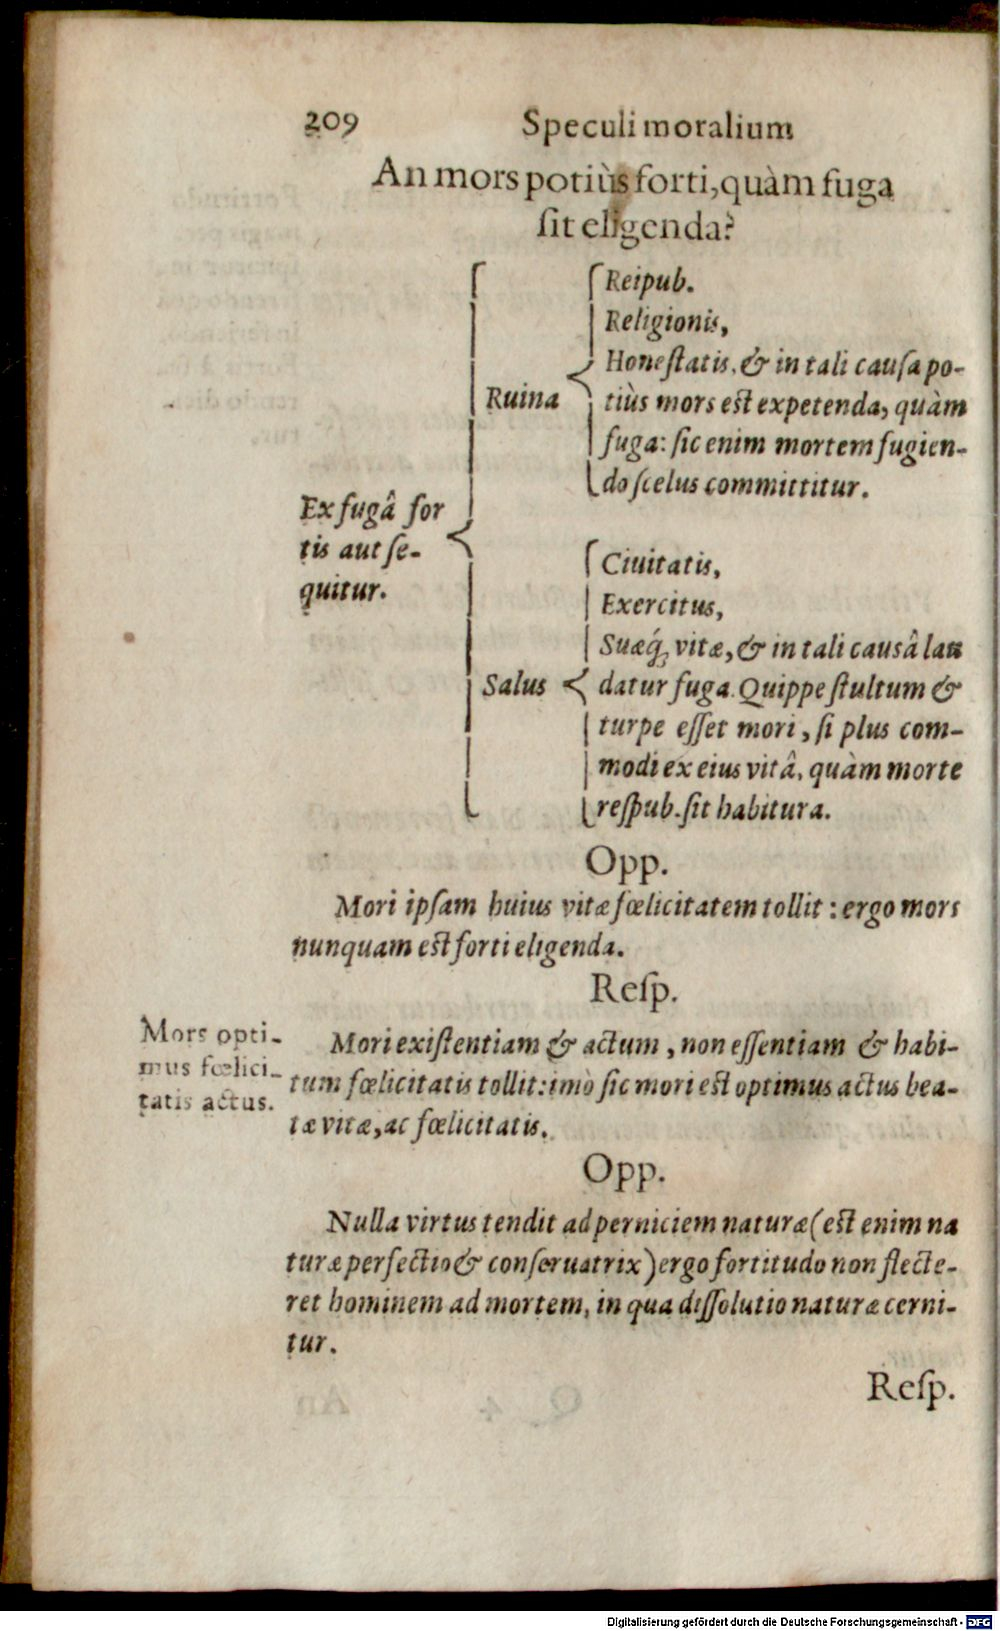 209 Speculi moralium
An mors potiùs forti, quàm fuga
ſit eligenda?
Ex fugâ for
tis aut ſe-
quitur.
Ruina
Reipub.
Religionis,
Honeſtatis, & in tali cauſa po-
tiùs mors eſt expetenda, quàm
fuga: ſic enim mortem fugien-
do ſcelus committitur.
Salus
Ciuitatis,
Exercitus,
Suæq́; vitæ, & in tali causâ lau
datur fuga. Quippe ſtultum &
turpe eſſet mori, ſi plus com-
modi ex eius vitâ, quàm morte
reſpub. ſit habitura.
Opp.
Mori ipſam huius vitæ fœlicitatem tollit: ergo mors
nunquam eſt forti eligenda.
Reſp.
Mors opti-
mus fœlici-
tatis actus.
Mori exiſtentiam & actum, non eſſentiam & habi-
tum fœlicitatis tollit: imò ſic mori eſt optimus actus bea-
tæ vitæ, ac fœlicitatis.
Opp.
Nulla virtus tendit ad perniciem naturæ (eſt enim na
turæ perfectio & conſeruatrix) ergo fortitudo non flecte-
ret hominem ad mortem, in qua diſſolutio naturæ cerni-
tur.
Reſp.
Digitalisierung gefördert durch die Deutsche Forschungsgemeinschaft - DFG